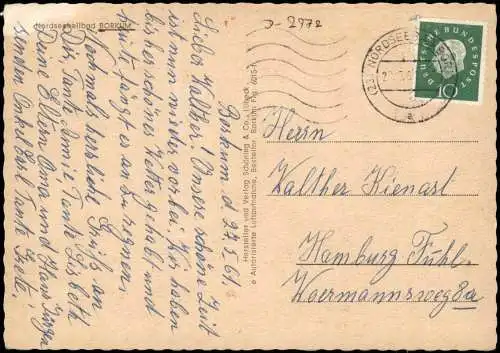 Nordseeheilbad BORKUM
D-2972
Borkum d. 27.5.61.
Lieber Walther! Unsere schöne Zeit
ist nun wieder vorbei. Wir haben
bisher schönes Wetter gehabt und
heute fängt es an zu regnen,
Nochmals herzliche Grüße an
Dir, Tante Annie Tante Lisbeth
Deine Eltern Oma und Hans Jürgen
senden Onkel Karl Tante Grete,
Hersteller und Verlag Schöning & Co., Lübeck
Autorisierte Luftaufnahme, Besteller Borkum Flg.
(23) NORDSEE
a
DEUTSCHE BUNDESPOST
10
Herrn
Walther Kienast
Hamburg Fuhl.
Woermannsweg 8a